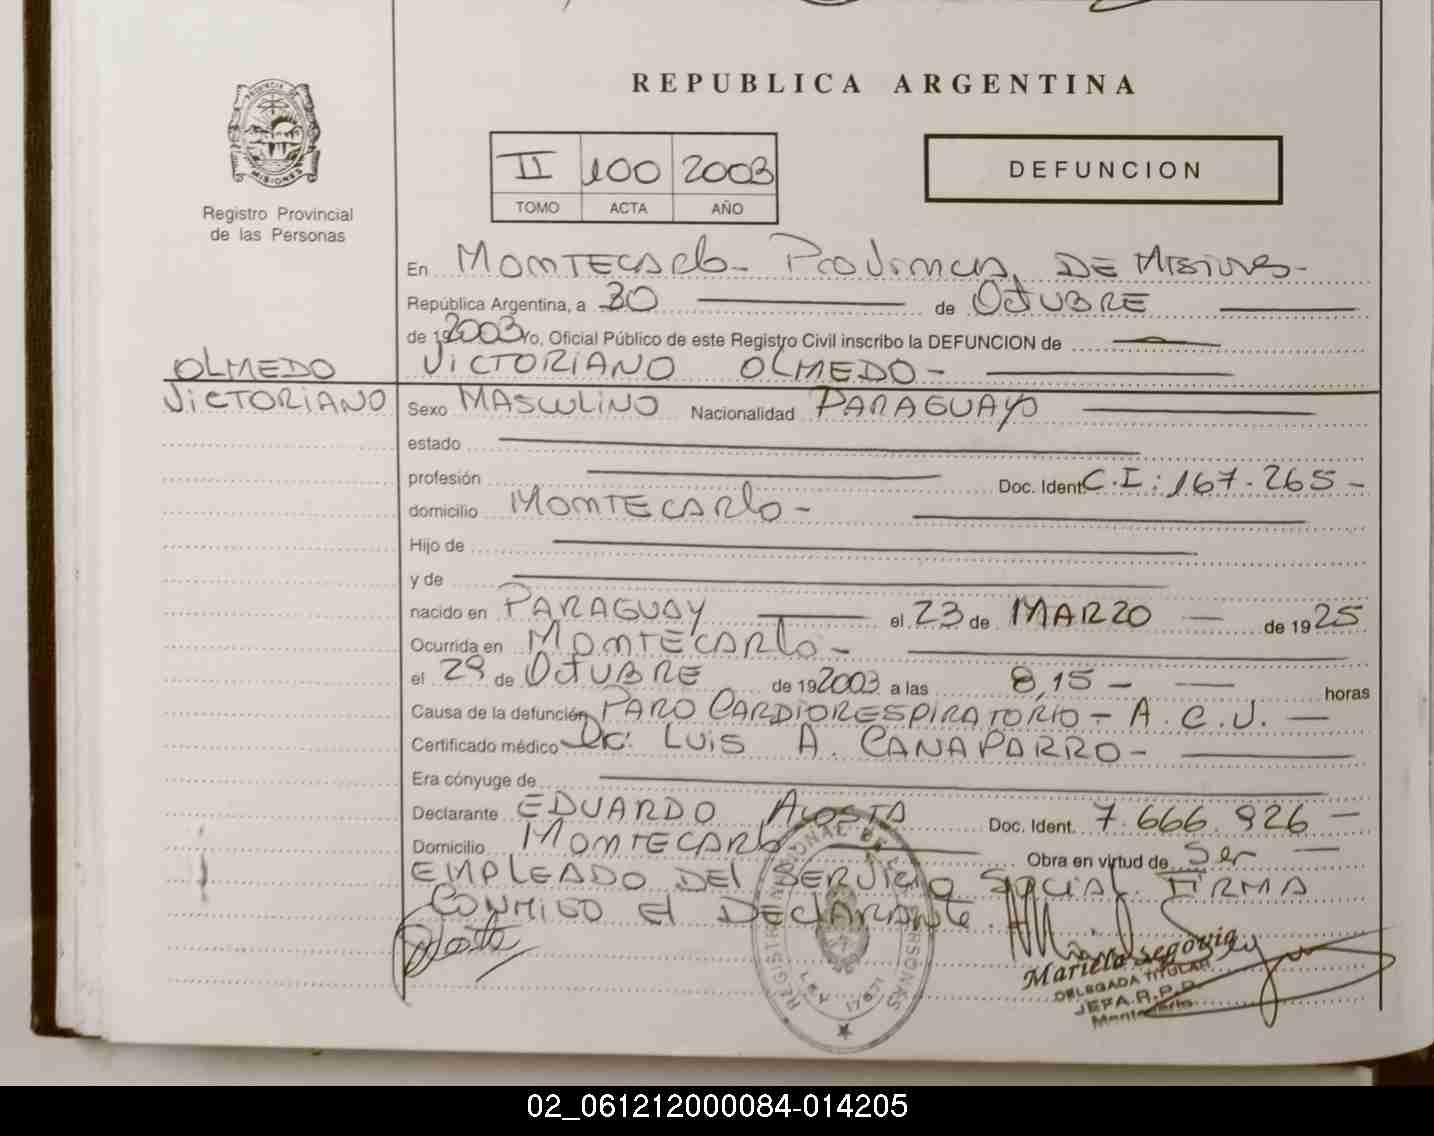 REPUBLICA ARGENTINA
PROVINCIA DE
MISIONES
Registro Provincial
de las Personas
II 100 2003
TOMO ACTA AÑO
DEFUNCION
En MONTECARLO - PROVINCIA DE MISIONES -
República Argentina, a 30 de OCTUBRE
de 19 2003 Yo, Oficial Público de este Registro Civil inscribo la DEFUNCION de
VICTORIANO OLMEDO -
OLMEDO
VICTORIANO
Sexo MASCULINO Nacionalidad PARAGUAYO
estado
profesión Doc. Ident. C.I: 167.265 -
domicilio MONTECARLO -
Hijo de
y de
nacido en PARAGUAY el 23 de MARZO de 19 25
Ocurrida en MONTECARLO -
el 29 de OCTUBRE de 19 2003 a las 8,15 - horas
Causa de la defunción PARO CARDIORESPIRATORIO - A.C.V. -
Certificado médico Dr: LUIS A. CANAPARRO -
Era cónyuge de
Declarante EDUARDO ACOSTA Doc. Ident. 7.666.926 -
Domicilio MONTECARLO Obra en virtud de Ser
EMPLEADO DEL SERVICIO SOCIAL. FIRMA
CONMIGO El DEClARANTE.
Mariela Segovia
DELEGADA TITULAR
JEFA R.P.P.
Montecarlo
02_061212000084-014205